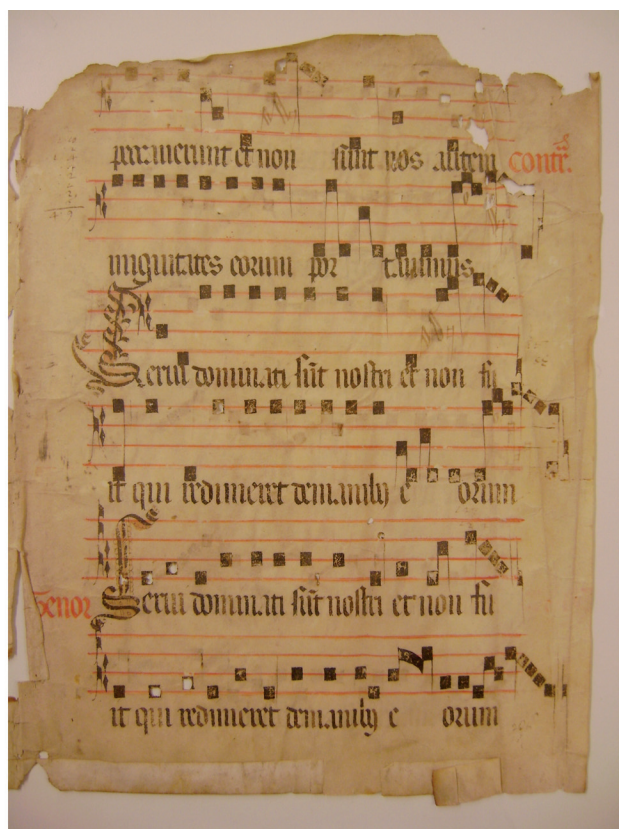 peccaverunt et non sunt nos autem contr.
iniquitates eorum portavimus
Servi dominati sūt nostri et non fu
it qui redimeret de manibꝫ eorum
Tenor Servi dominati sūt nostri et non fu
it qui redimeret de manibꝫ eorum